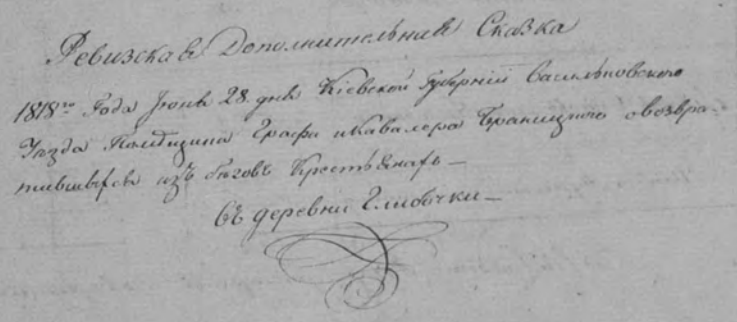 Ревизская Дополнительная Сказка
1818го Года Июня 28 дня Кіевской Губерніи Васильковского
Уезда Помещика Графа и Кавалера Браницкого о возвра-
тившихся изъ беговъ Крестьянахъ
Въ деревни Глибочки